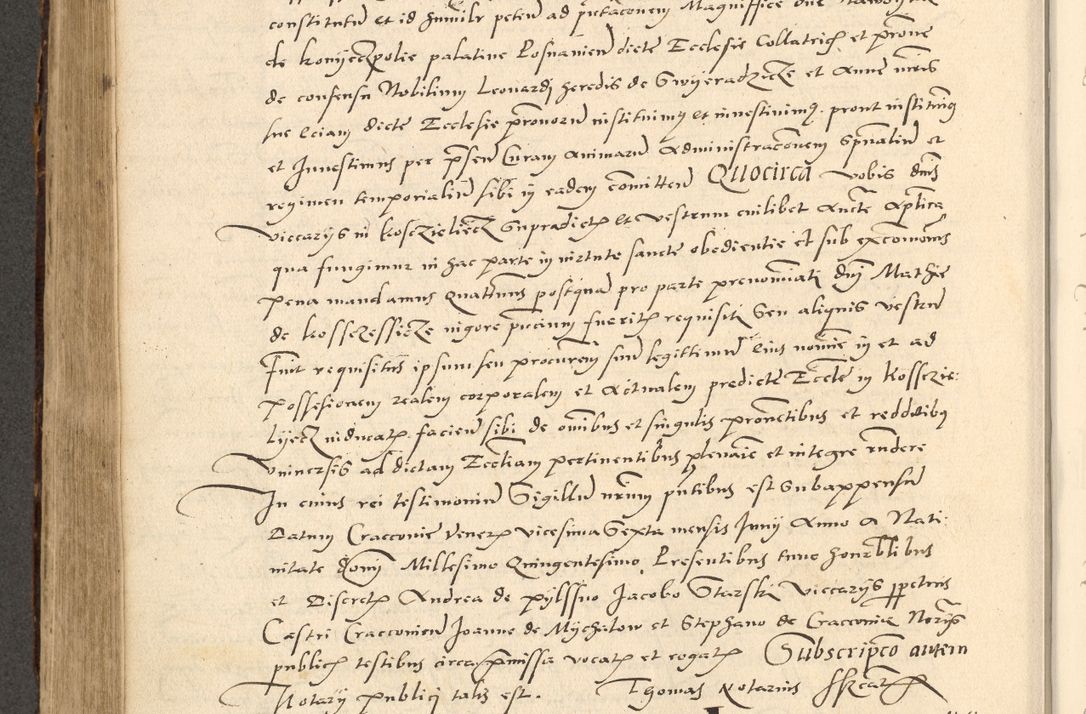 constitutum et id humilr peten ad pntaconem Magnifice dne
de konyeczpolie palatine Posnanien dicte Ecclesie Collatrich et prone
de consensu Nobilium Leonardi heredis de Gwyeradzicze et Anne
sue eciam dicte Ecclesie instituimus et investivimus prout instituimus
et Investimus per psen Curam animarum Administraconem spualium et
regimen temporalium sibi in eadem comitten Quocirca vobis dnis
viccarys in kosczieliecz supradictis et vestrum cuilibet Aucte Aplica
qua fungimur in hac parte in virtute sancte obedientie et sub excomonis
pena mandamus Quatenus postquam pro parte prenominati dni Mathie
de kossczessicze vigore pncium fueritis requisiti seu aliquis vestrum
fuit requisitus ipsum seu procurem suum legittimum eius nomine in et ad
possessionem realem corporalem et Actualem predicte Eccle in Kossczie:
lyecz inducatis facien sibi de omibus et singulis proventibus et redditibus
universis ad dictam Eccliam pertinentibus plenarie et integre rndere
In cuius rei testimonium Sigillum nrum pntibus est subappensum
Datum Cracovie veneris vicesima Sexta mensis Junij Anno a Nati:
vitate domi Millesimo Quingentesimo Presentibus tunc honrblibus
et Discretis Andrea de pylssno Jacobo Starski viccarys ppetuis
Castri Cracovien Joanne de Mychalow et Stephano de Cracovia Notariis
publicis testibus circa pmissa vocatis et rogatis Subscripco autem
Notarij publici talis est. Thomas Notarius